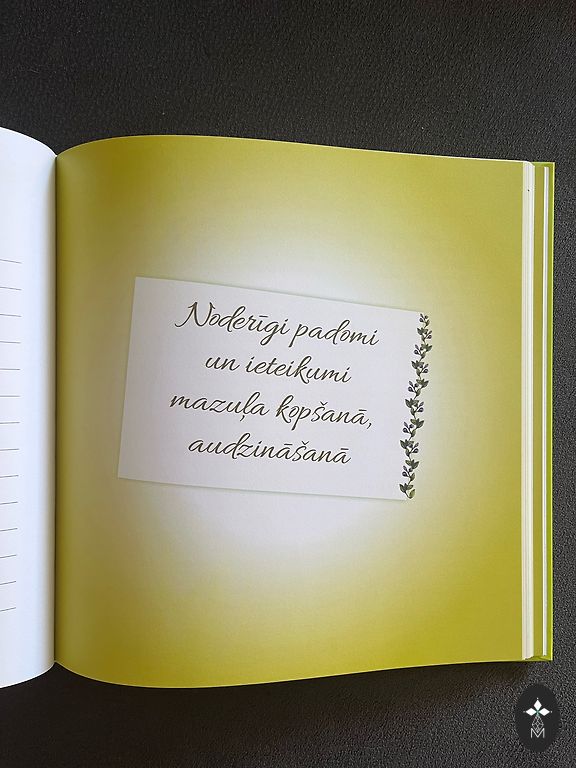 Noderīgi padomi
un ieteikumi
mazuļa kopšanā,
audzināšanā
M